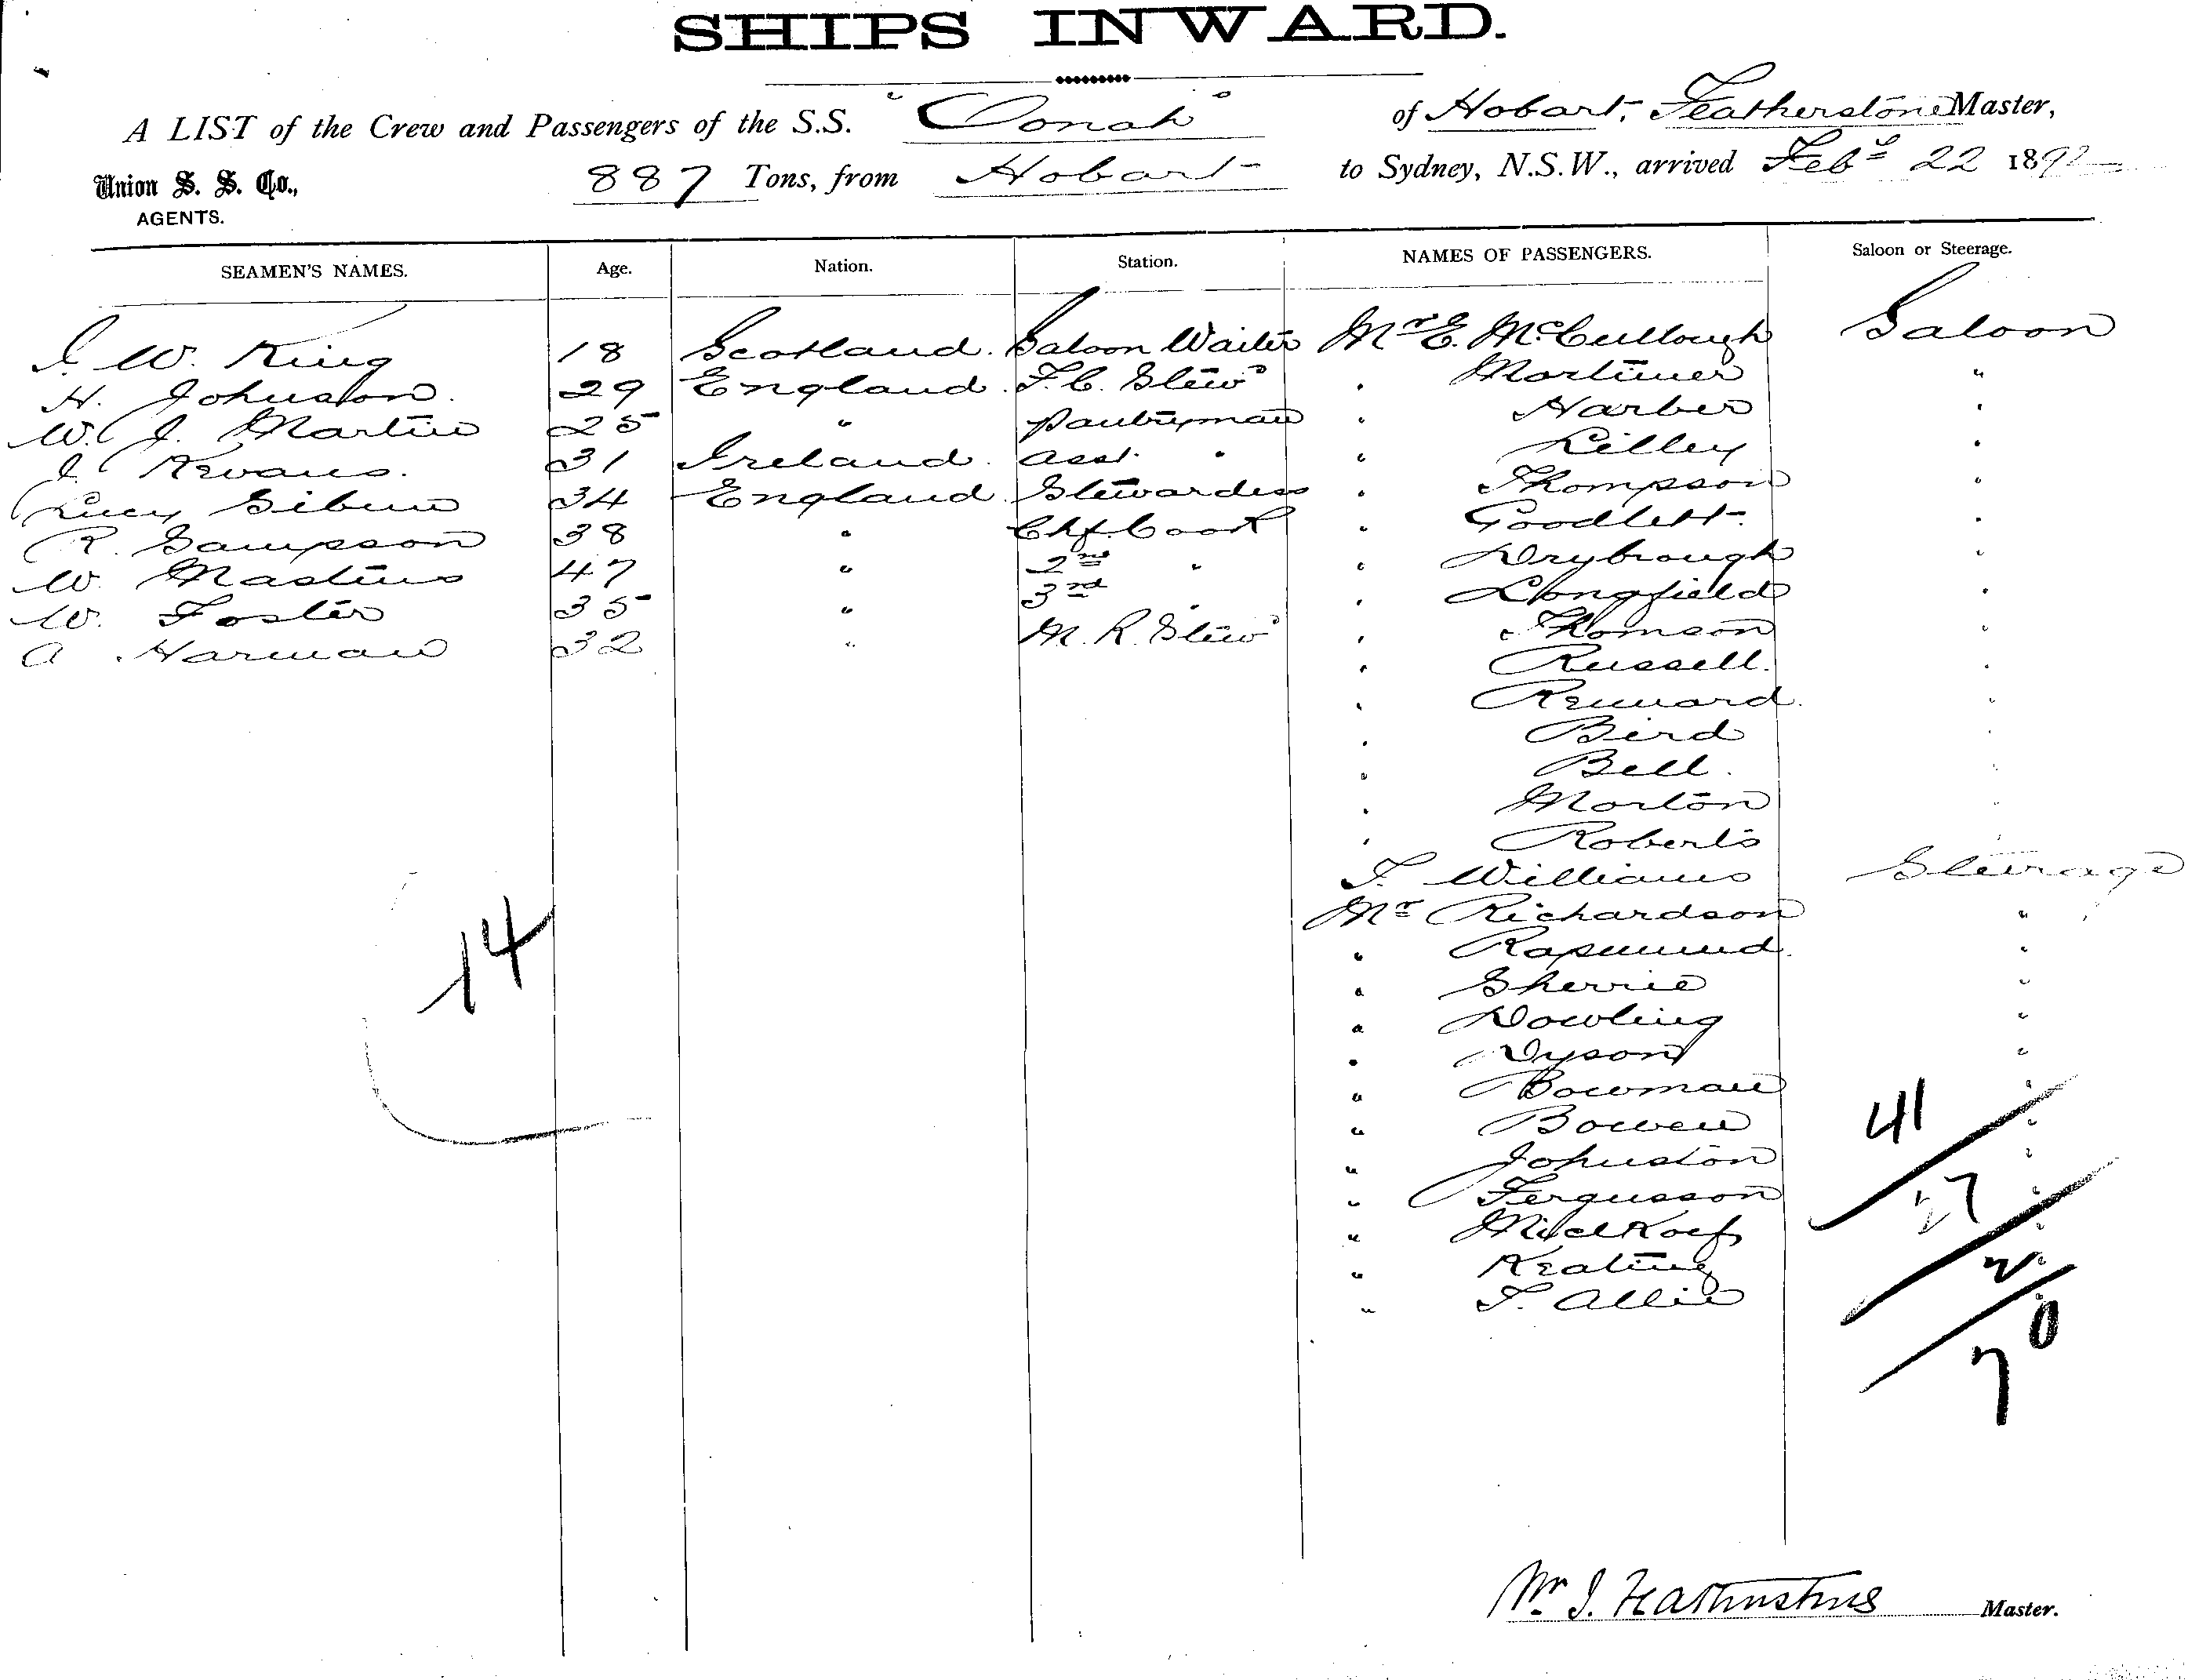 SHIPS INWARD.
A LIST of the Crew and Passengers of the S.S. "Oonah" of Hobart, Featherstone Master,
Union S. S. Co., AGENTS. 887 Tons, from Hobart to Sydney, N.S.W., arrived Feby 22 1892
SEAMEN'S NAMES. Age. Nation. Station. NAMES OF PASSENGERS. Saloon or Steerage.
J. W. King 18 Scotland. Saloon Waiter Mr E. McCullough Saloon
H. Johnston. 29 England. F. C. Stewd " Mortimer "
W. J. Martin 25 " Pantryman " Harber "
J. Kevans. 31 Ireland. Asst. " " Lilley "
Lucy Gibson 34 England. Stewardess " Thompson "
R. Sampson 38 " Chf. Cook " Goodlett "
W. Mastins 47 " 2nd " " Drybrough "
W. Foster 35 " 3rd " " Longfield "
A. Harman 32 " M. R. Stewd " Thomson "
" Russell. "
" Renward. "
" Bird "
" Bell. "
" Morton "
" Roberts "
T. Williams Steerage
Mr Richardson "
" "
" Sherrie "
" Dowling "
" Dyson "
" Bowman "
" Bowen "
" Johnston "
" Fergusson "
" "
" Keating "
" T. Allie
14
41
27
2
70
Wm J. Featherstone Master.